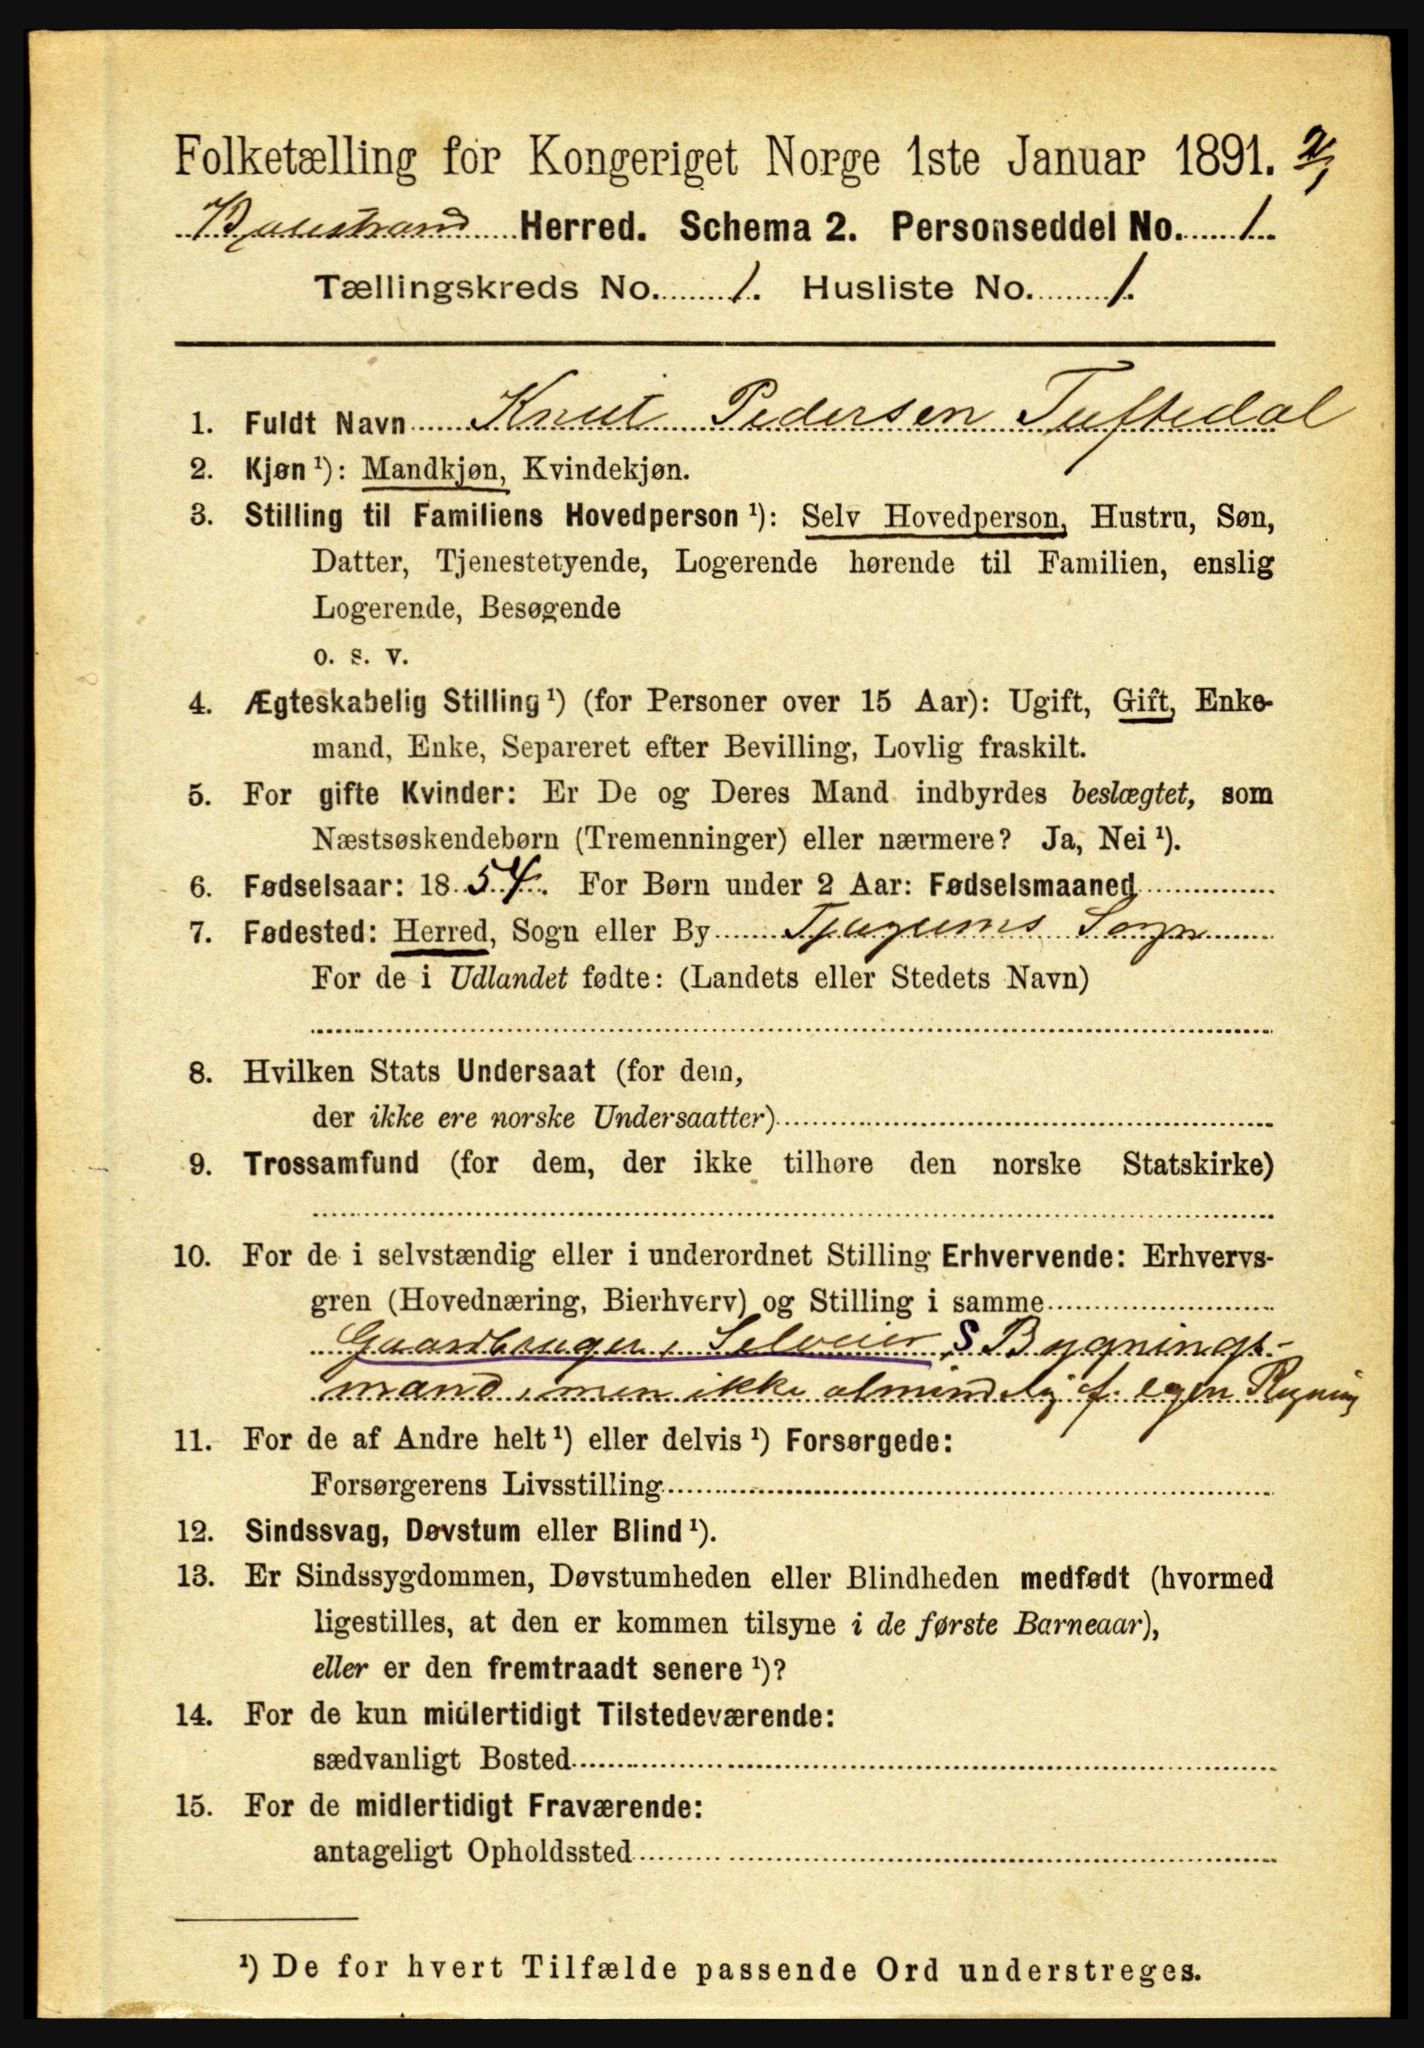 Folketælling for Kongeriget Norge 1ste Januar 1891.
Balestrand Herred. Schema 2. Personseddel No. 1.
Tællingskreds No. 1. Husliste No. 1.
1. Fuldt Navn Knut Pedersen Tuftedal
2. Kjøn ¹): Mandkjøn, Kvindekjøn.
3. Stilling til Familiens Hovedperson ¹): Selv Hovedperson, Hustru, Søn,
Datter, Tjenestetyende, Logerende hørende til Familien, enslig
Logerende, Besøgende
o. s. v.
4. Ægteskabelig Stilling ¹) (for Personer over 15 Aar): Ugift, Gift, Enke-
mand, Enke, Separeret efter Bevilling, Lovlig fraskilt.
5. For gifte Kvinder: Er De og Deres Mand indbyrdes beslægtet, som
Næstsøskendebørn (Tremenninger) eller nærmere? Ja, Nei ¹).
6. Fødselsaar: 1854. For Børn under 2 Aar: Fødselsmaaned
7. Fødested: Herred, Sogn eller By Tjugums Sogn
For de i Udlandet fødte: (Landets eller Stedets Navn)
8. Hvilken Stats Undersaat (for dem,
der ikke ere norske Undersaatter)
9. Trossamfund (for dem, der ikke tilhøre den norske Statskirke)
10. For de i selvstændig eller i underordnet Stilling Erhvervende: Erhvervs-
gren (Hovednæring, Bierhverv) og Stilling i samme
Gaardbruger, Selveier, S Bygnings-
mand, men ikke almindelig f. egen Regning
11. For de af Andre helt ¹) eller delvis ¹) Forsørgede:
Forsørgerens Livsstilling
12. Sindssvag, Døvstum eller Blind ¹).
13. Er Sindssygdommen, Døvstumheden eller Blindheden medfødt (hvormed
ligestilles, at den er kommen tilsyne i de første Barneaar),
eller er den fremtraadt senere ¹)?
14. For de kun midlertidigt Tilstedeværende:
sædvanligt Bosted
15. For de midlertidigt Fraværende:
antageligt Opholdssted
¹) De for hvert Tilfælde passende Ord understreges.